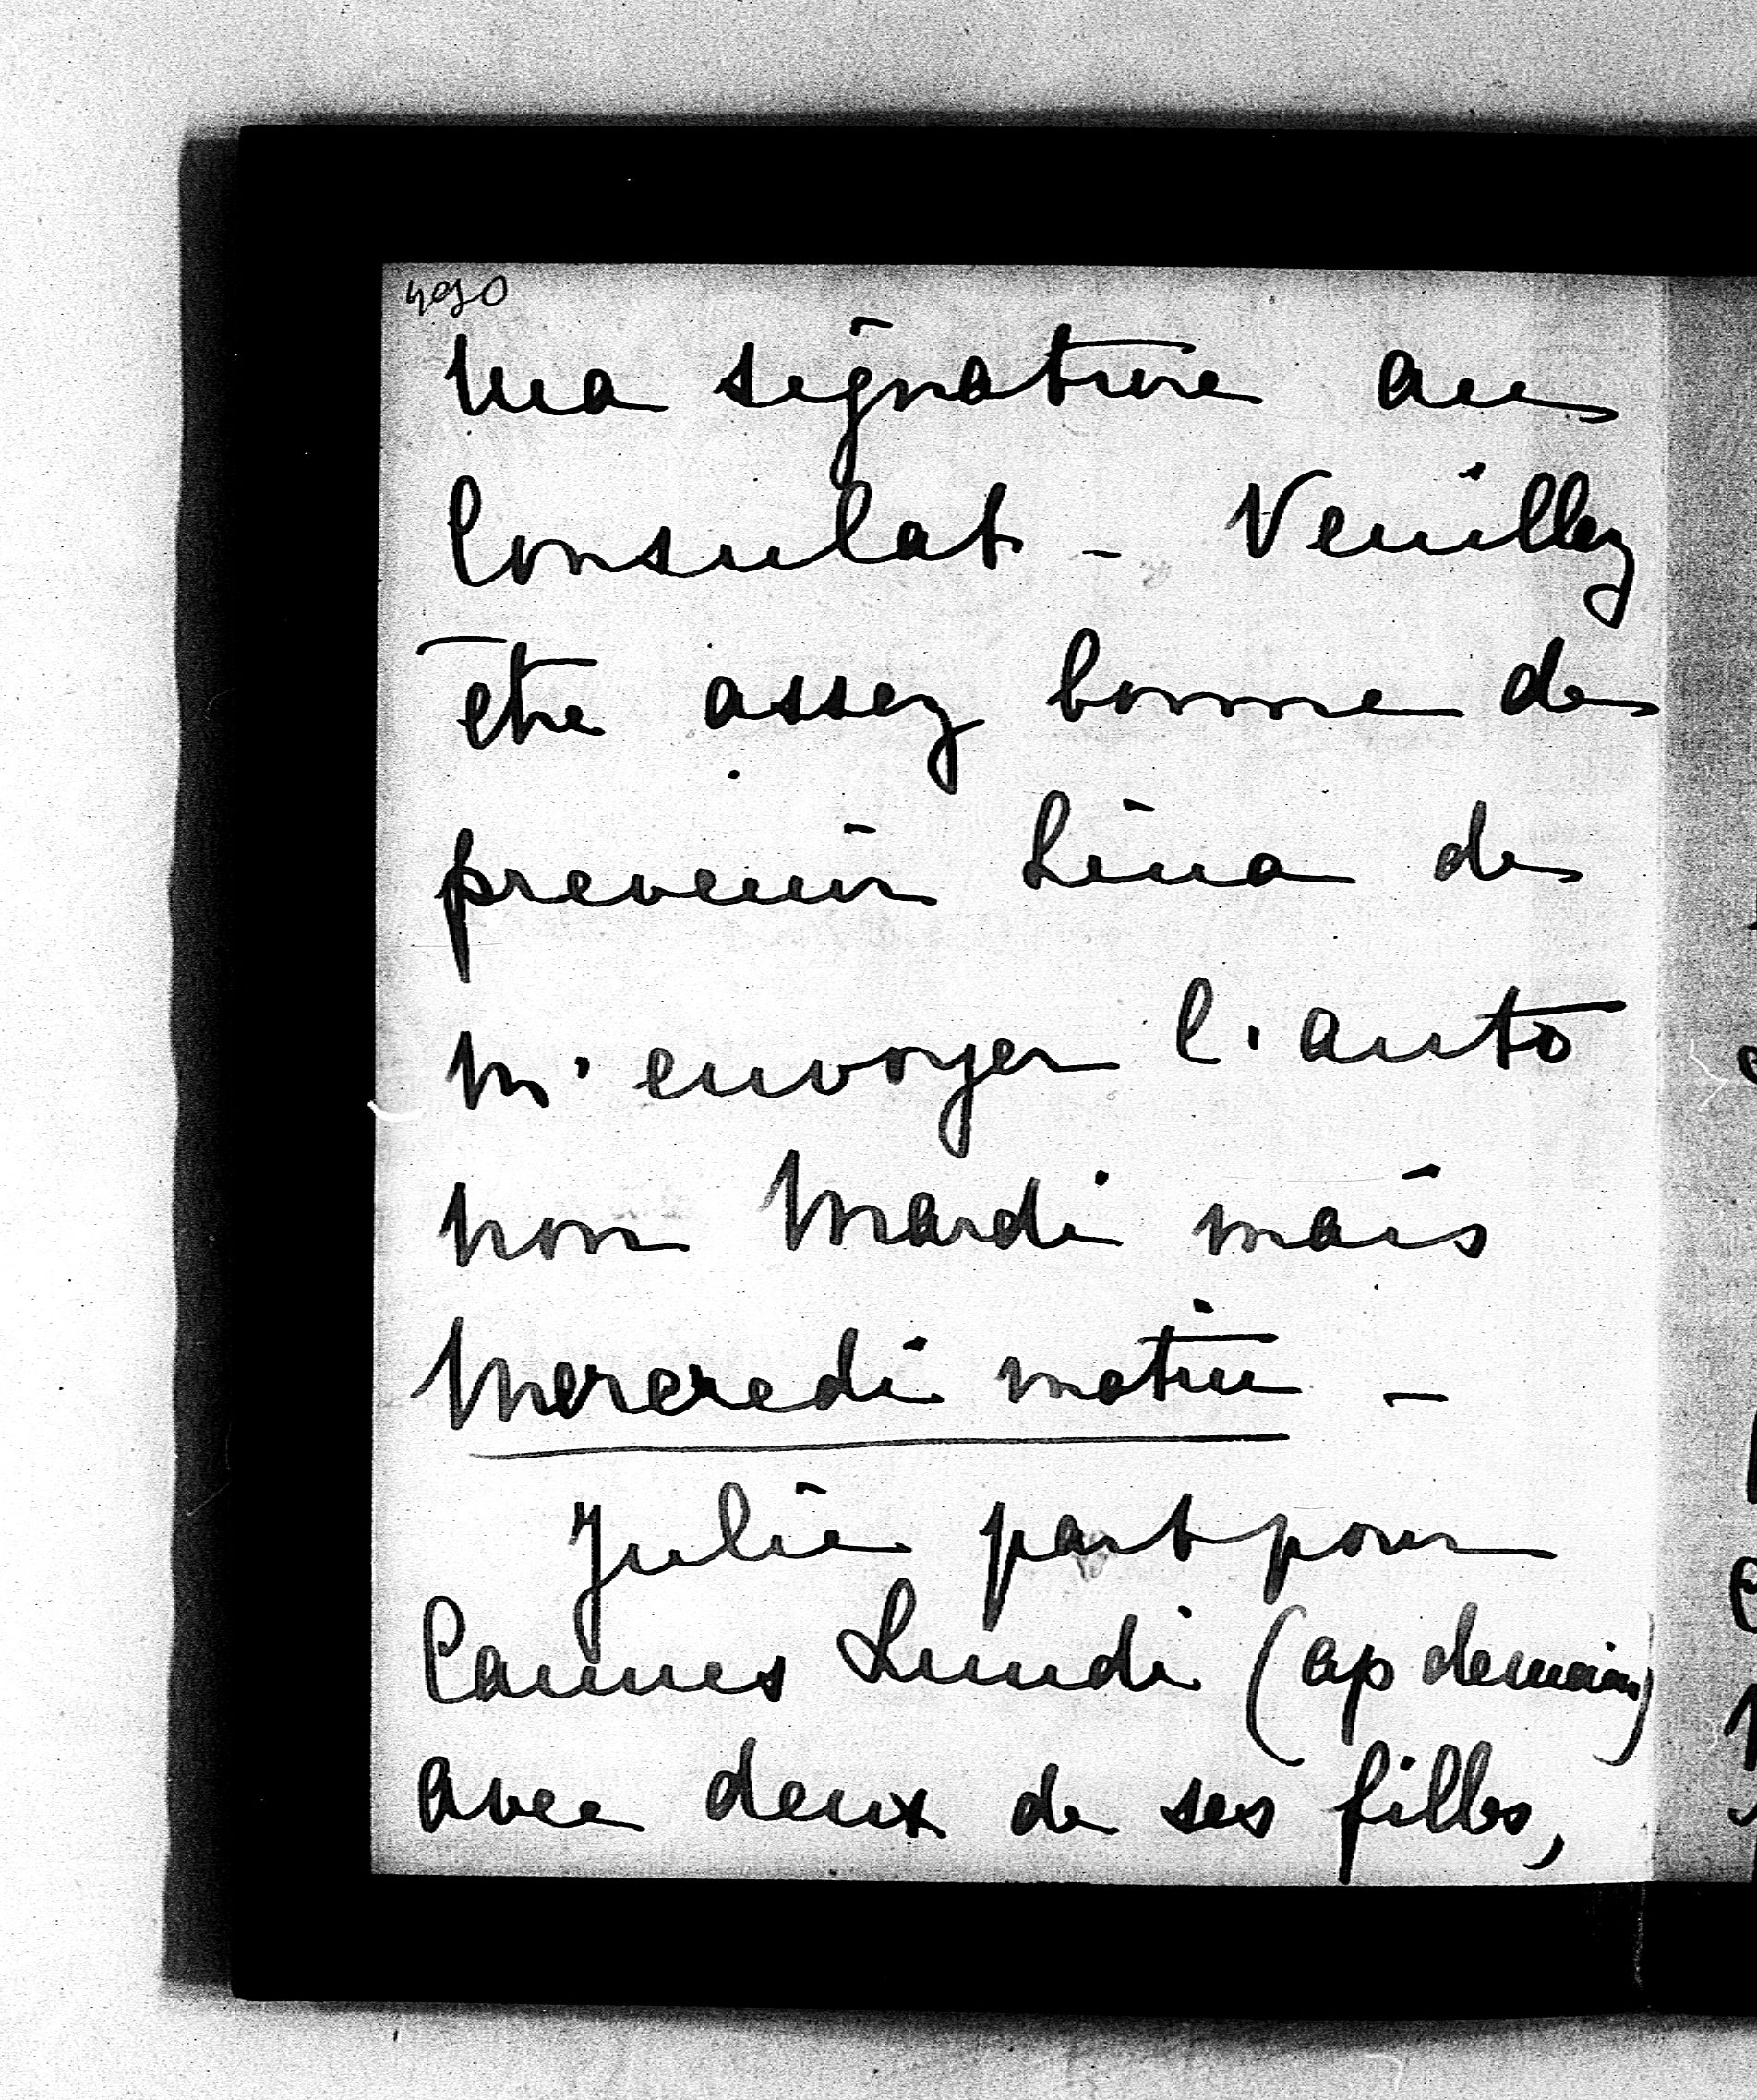 ma signature au
Consulat - Veuillez
être assez bonne de
prevenir Lina de
m'envoyer l'auto
non Mardi mais
Mercredi matin -
Julie part pour
Cannes Lundi (ap demain)
avec deux de ses filles,